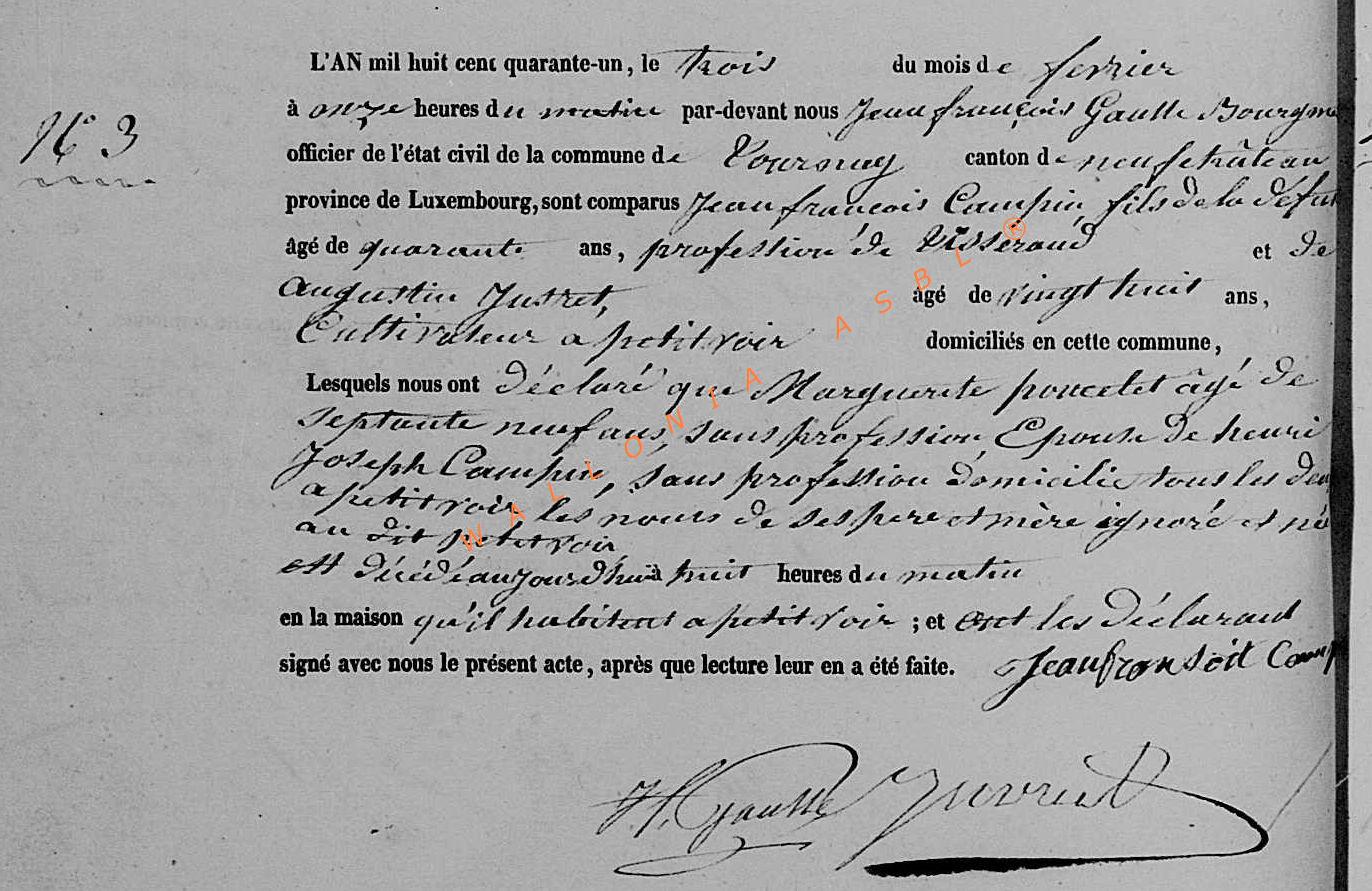 N° 3
L'AN mil huit cent quarante-un, le trois du mois de fevrier
à onze heures du matin par-devant nous Jean françois Gaulle Bourgme
officier de l'état civil de la commune de Tournay canton de neufchâteau
province de Luxembourg, sont comparus Jean françois Campin, fils de la défun
âgé de quarante ans, profession de tisserand et de
augustin Jusret, âgé de vingt huit ans,
Cultivateur a petitvoir domiciliés en cette commune,
Lesquels nous ont déclaré que Marguerite poncelet âgé de
septante neuf ans, sans profession, Epouse de henri
Joseph Campin, sans profession domicilié tous les deu
a petitvoir les noms de ses pere et mère ignoré et né
au dit petitvoir
est décédé aujourd'hui à huit heures du matin
en la maison qu'il habitent a petitvoir ; et ont les déclarant
signé avec nous le présent acte, après que lecture leur en a été faite. Jeanfransoit Camp
WALLONIA ASBL ®